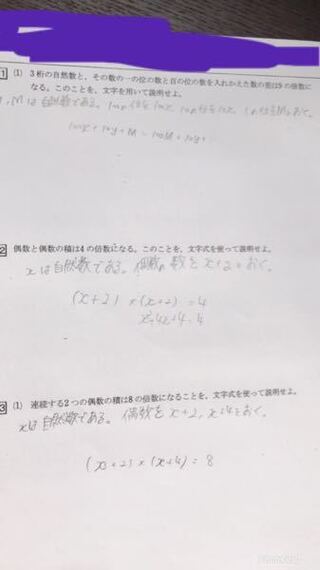 1 (1) 3桁の自然数と、その数の一の位の数と百の位の数を入れかえた数の差は9の倍数に
なる。このことを、文字を用いて説明せよ。
Mは自然数である。
100x+10y+M-100M+10y+
2 偶数と偶数の積は4の倍数になる。このことを、文字式を使って説明せよ。
xは自然数である。偶数の数をx+2とおく。
(x+2)×(x+2)=4
x²+4x+4=4
3 (1) 連続する2つの偶数の積は8の倍数になることを、文字式を使って説明せよ。
xは自然数である。偶数をx+2,x+4とおく。
(x+2)×(x+4)=8